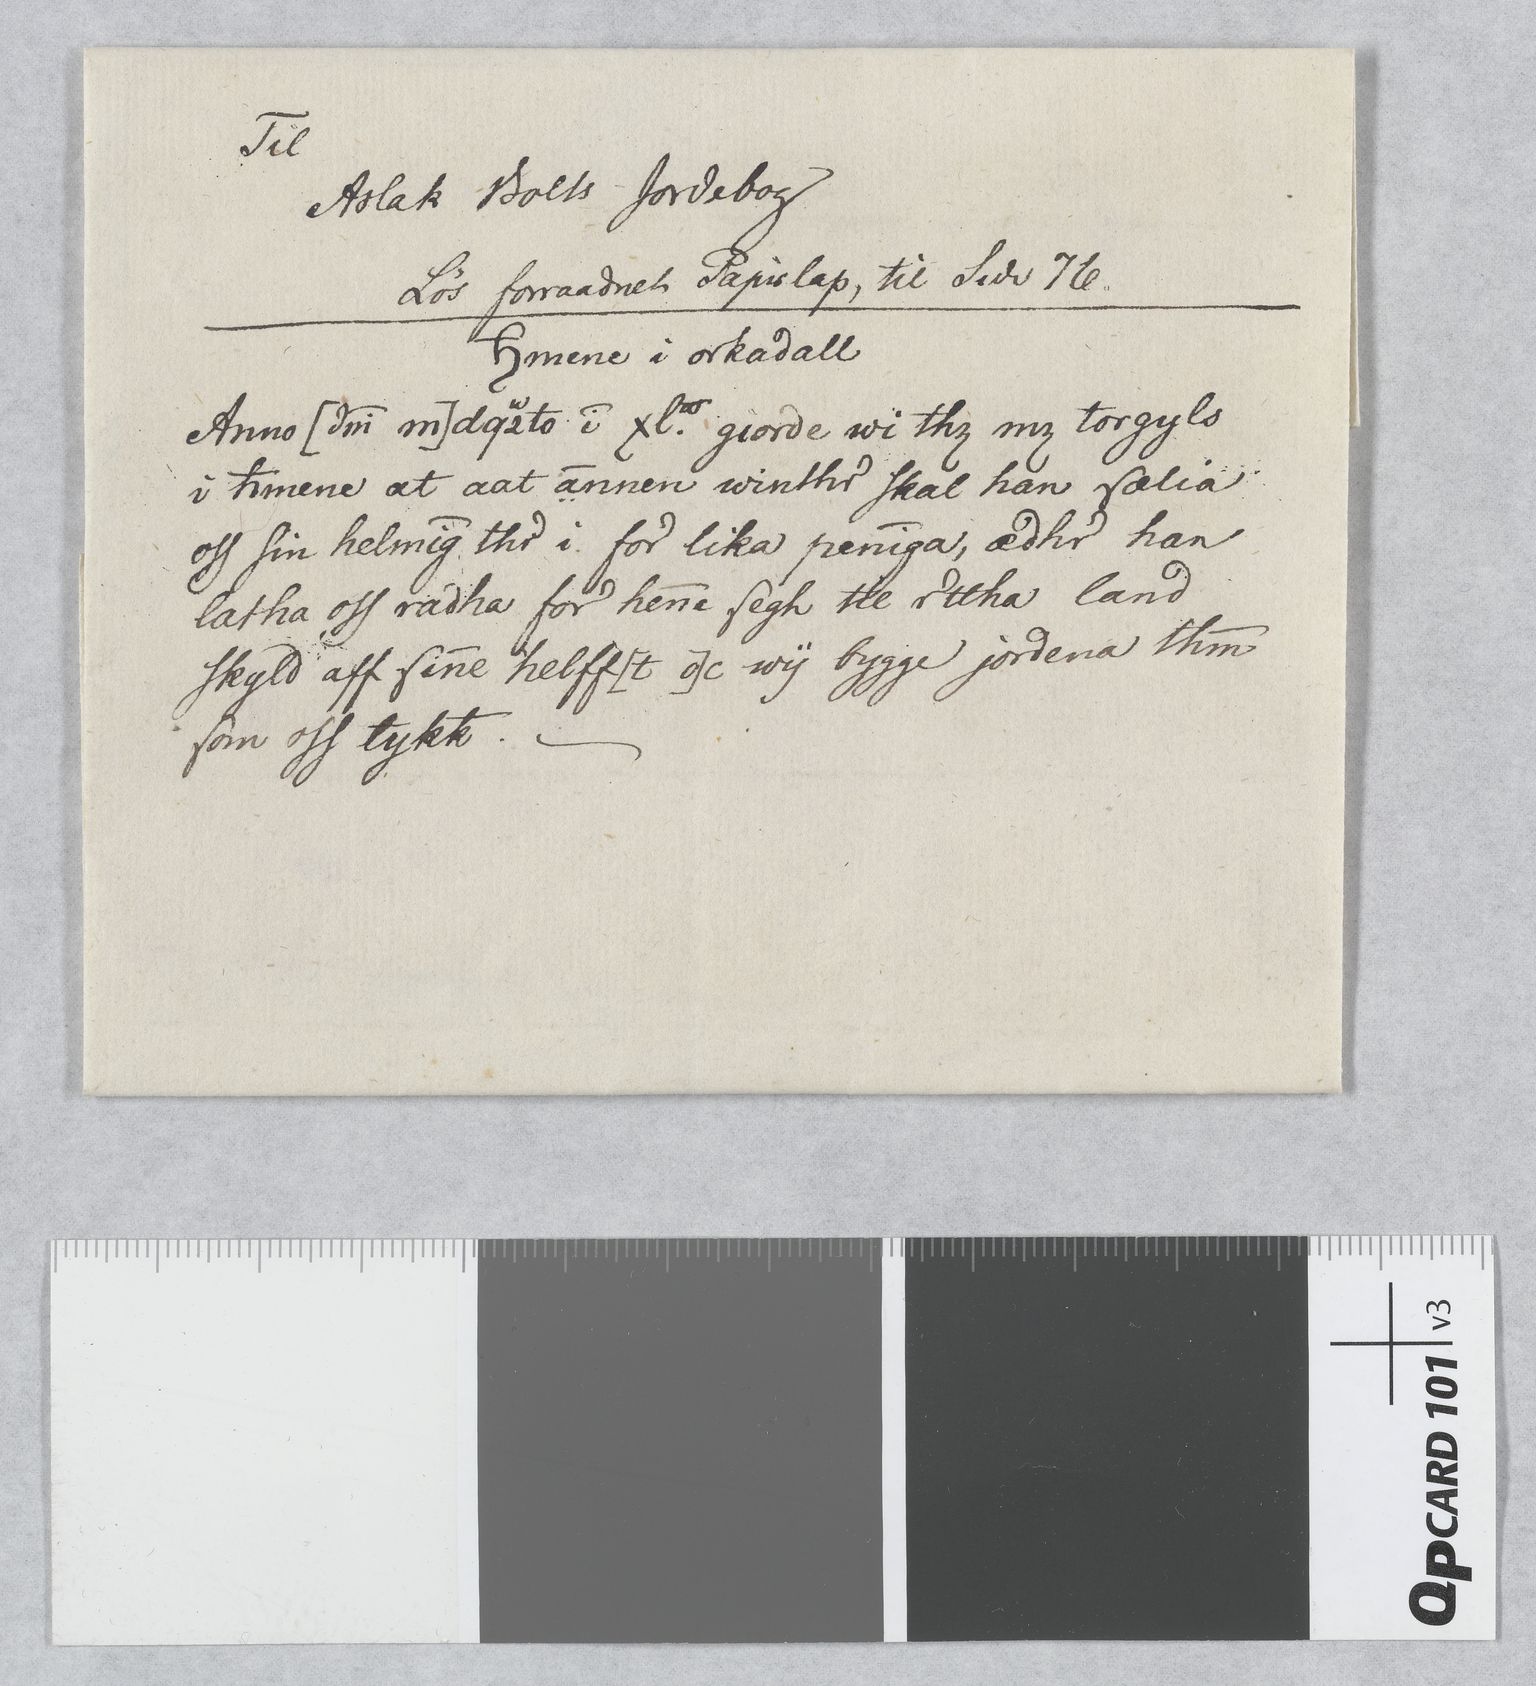 Til
Aslak Bolts Jordebog
Lös forraadnet Papirlap, til Side 76.
Hmene i orkadall
Anno [dm̄ m]dq2to ī xl. giorde wi thz mz torgyls
i hmene at aat ānnen winthr skal han sælia
oss sin helmīg thr i for lika penīga, ædhr han
latha oss radha for hen̄e segh tle rttha land
skyld aff sin̄e helfft[t o]c wÿ bygge jordena thm̄
som oss tykk̄.
QPCARD 101 v3